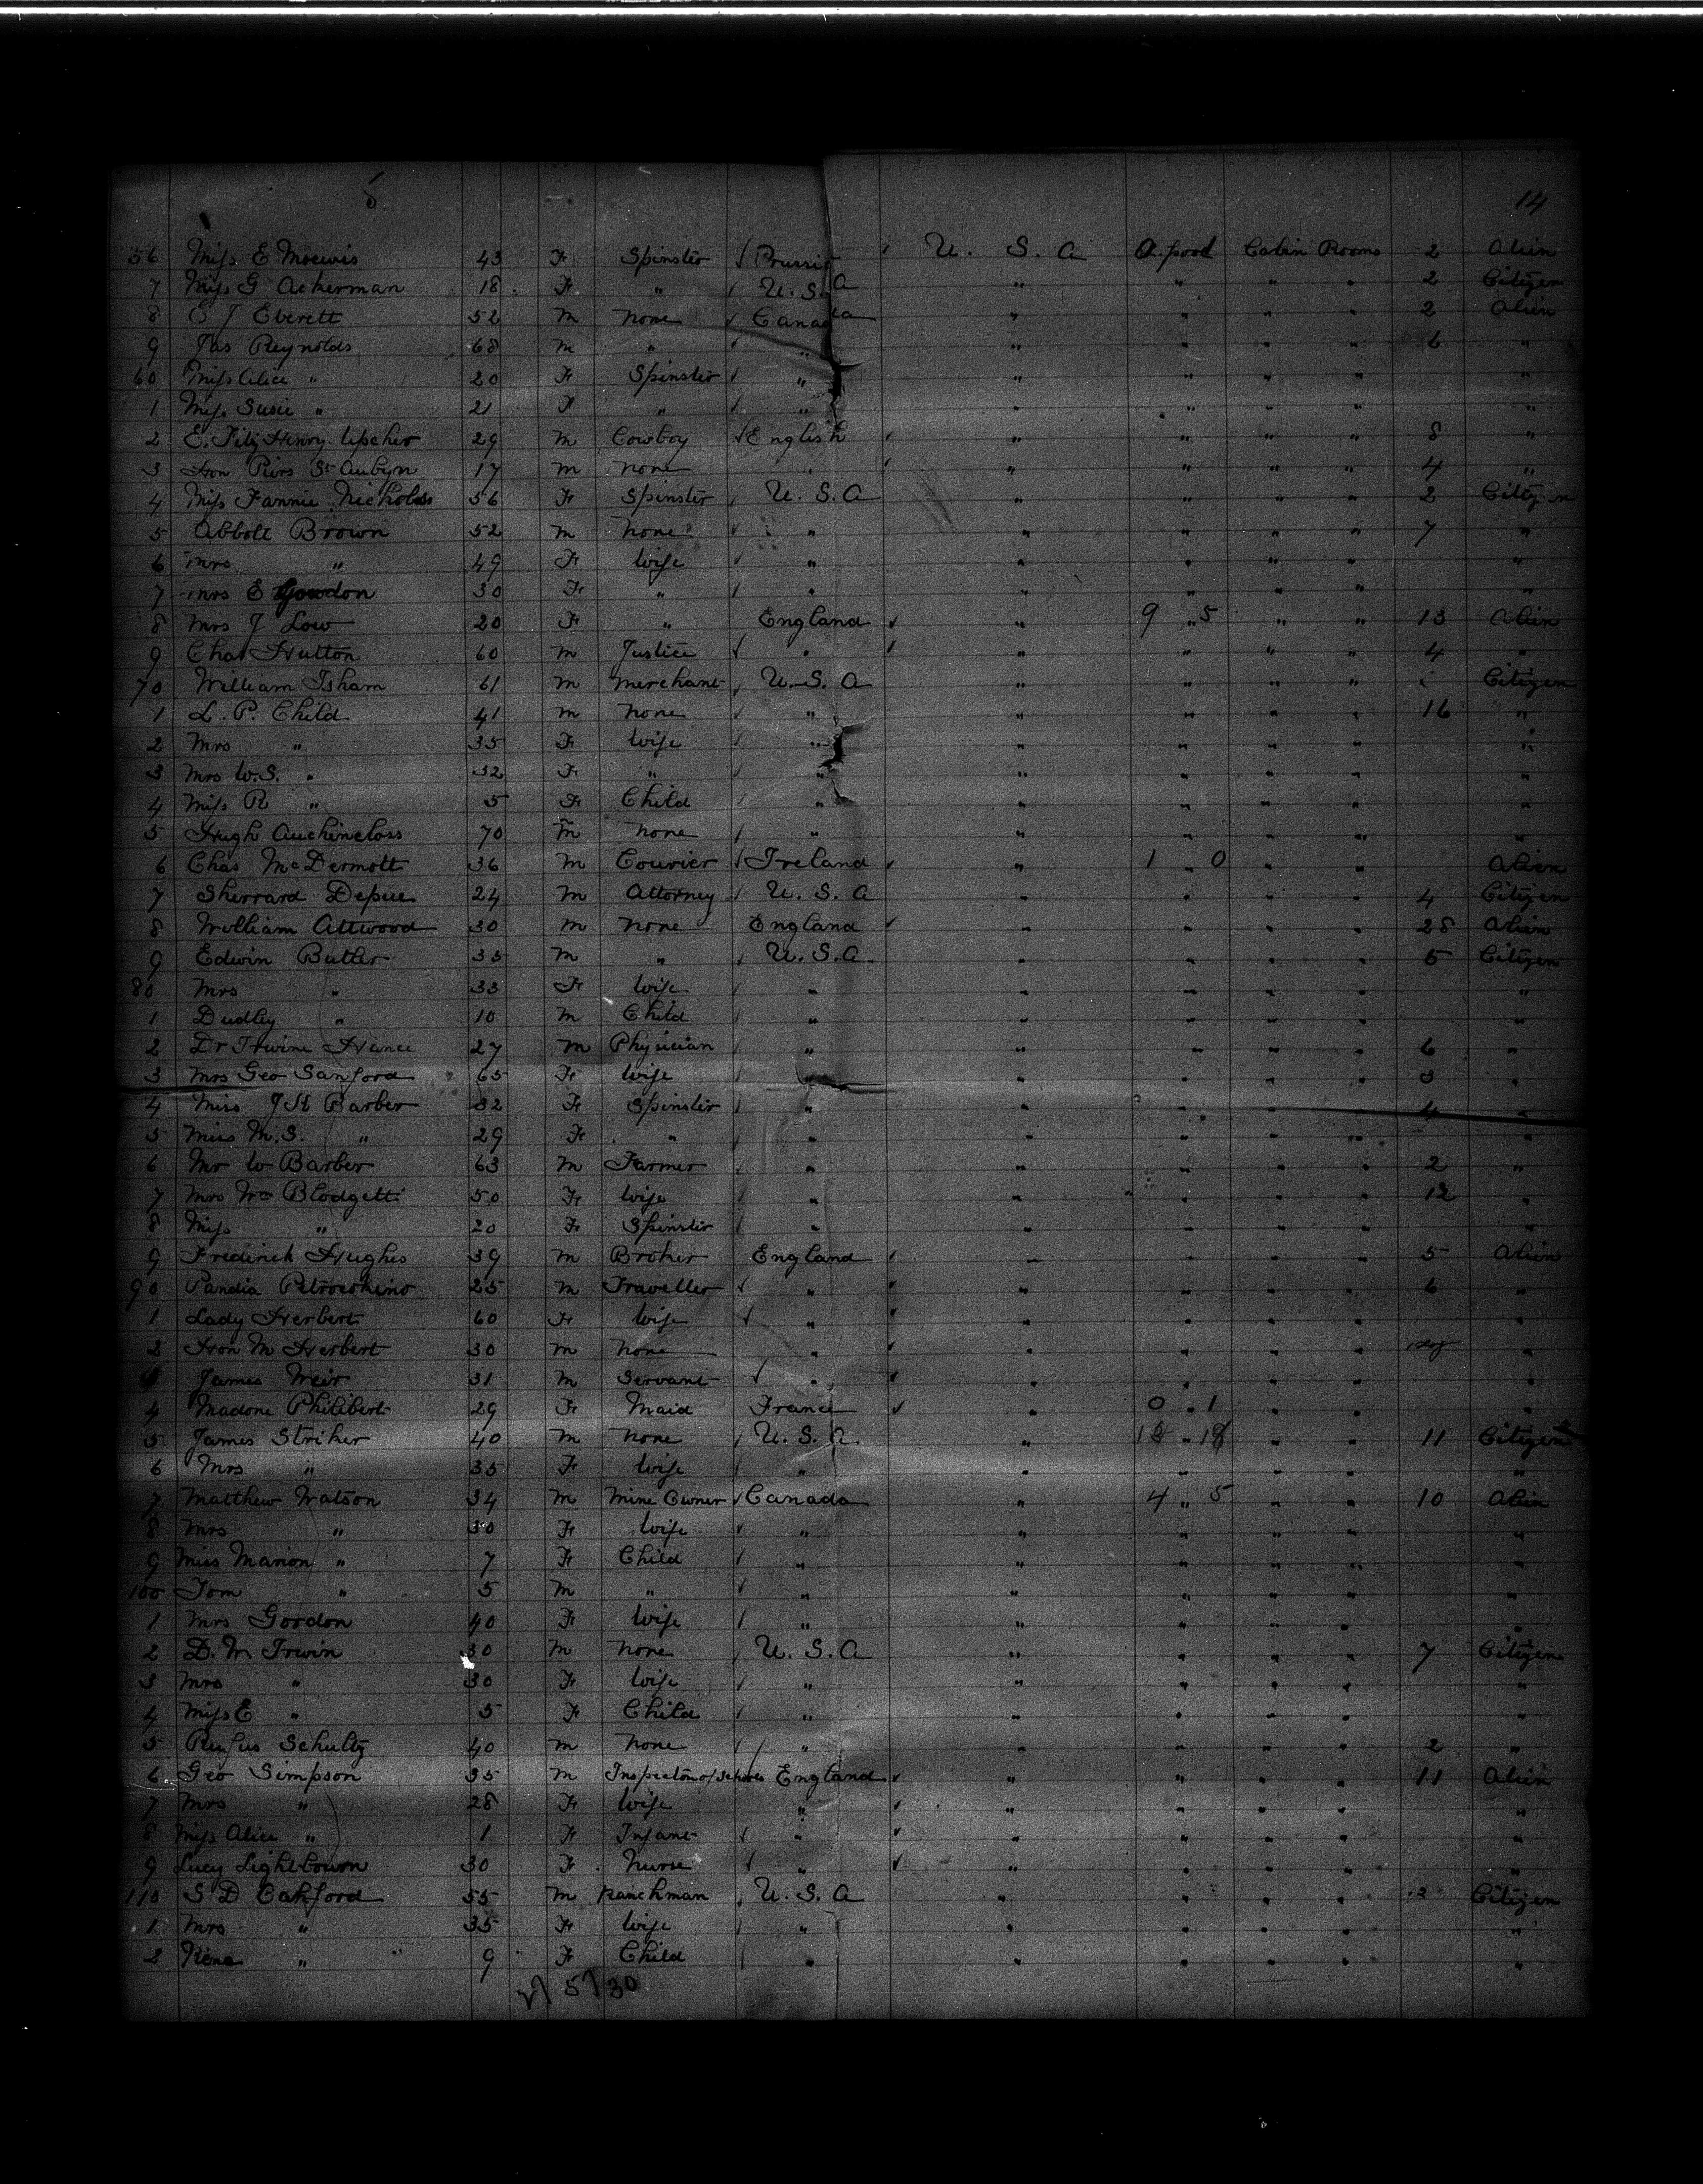 14
56 Miss E Moewis 43 F Spinster Prussia U. S. A A. pool Cabin Rooms 2 Alien
7 Miss G Ackerman 18 F " U. S. A " " " " 2 Citizen
8 E J Everett 52 M None Canada " " " " 2 Alien
9 Jas Reynolds 68 M " " " " " " 6 "
60 Miss Alice " 20 F Spinster " " " " " "
1 Miss Susie " 21 F " " " " " " "
2 E. Fitz Henry Upcher 29 M Cowboy English " " " " 8 "
3 Hon Piers St Aubyn 17 M None " " " " " 4 "
4 Miss Fannie Nicholas 56 F Spinster U. S. A " " " " 2 Citizen
5 Abbott Brown 52 M None " " " " " 7 "
6 Mrs " 49 F Wife " " " " " "
7 Mrs E Gowdon 30 F " " " " " " "
8 Mrs J Low 20 F " England " 9 " 5 " " 13 Alien
9 Chas Hutton 60 M Justice " " " " " 4 "
70 William Isham 61 M Merchant U. S. A " " " " Citizen
1 L. P. Child 41 M None " " " " " 16 "
2 Mrs " 35 F Wife " " " " " "
3 Mrs W. S. " 32 F " " " " " " "
4 Miss R " 5 F Child " " " " " "
5 Hugh Auchincloss 70 M None " " " " " "
6 Chas McDermott 36 M Courier Ireland " 1 " 0 " " Alien
7 Sherrard Depue 24 M Attorney U. S. A " " " " 4 Citizen
8 William Attwood 30 M None England " " " " 28 Alien
9 Edwin Butler 35 M " U. S. A. " " " " 5 Citizen
80 Mrs " 33 F Wife " " " " " "
1 Dudley " 10 M Child " " " " "
2 Dr Irwine Hance 27 M Physician " " " " " 6 "
3 Mrs Geo Sanford 65 F Wife " " " " " 3 "
4 Miss J H Barber 32 F Spinster " " " " " 4 "
5 Miss M. S. " 29 F " " " " " " "
6 Mr W Barber 63 M Farmer " " " " " 2 "
7 Mrs Wm Blodgett 50 F Wife " " " " " 12 "
8 Miss " 20 F Spinster " " " " " "
9 Frederick Hughes 39 M Broker England " " " " 5 Alien
90 Pandia Petrocochino 25 M Traveller " " " " " 6 "
1 Lady Herbert 60 F Wife " " " " " "
2 Hon M Herbert 30 M None " " " " " "
James Weir 31 M Servant " " " " " "
4 Madone Philibert 29 F Maid France " 0 " 1 " " "
5 James Striker 40 M None U. S. A. " 18 " 18 " " 11 Citizen
6 Mrs " 35 F Wife " " " " " "
7 Matthew Watson 34 M Mine Owner Canada " 4 " 5 " " 10 Alien
8 Mrs " 30 F Wife " " " " " "
9 Miss Marion " 7 F Child " " " " " "
100 Tom " 5 M " " " " " " "
1 Mrs Gordon 40 F Wife " " " " " "
2 D. M Irwin 30 M None U. S. A " " " " 7 Citizen
3 Mrs " 30 F Wife " " " " " "
4 Miss E " 5 F Child " " " " " "
5 Rufus Schultz 40 M None " " " " " 2 "
6 Geo Simpson 35 M Inspector of Schools England " " " " 11 Alien
7 Mrs " 28 F Wife " " " " " "
8 Miss Alice " 1 F Infant " " " " " "
9 Lucy Lightbown 30 F Nurse " " " " " "
110 S D Oakford 55 M Ranchman U. S. A " " " " 2 Citizen
1 Mrs " 35 F Wife " " " " " "
2 Rene " 9 F Child " " " " " "